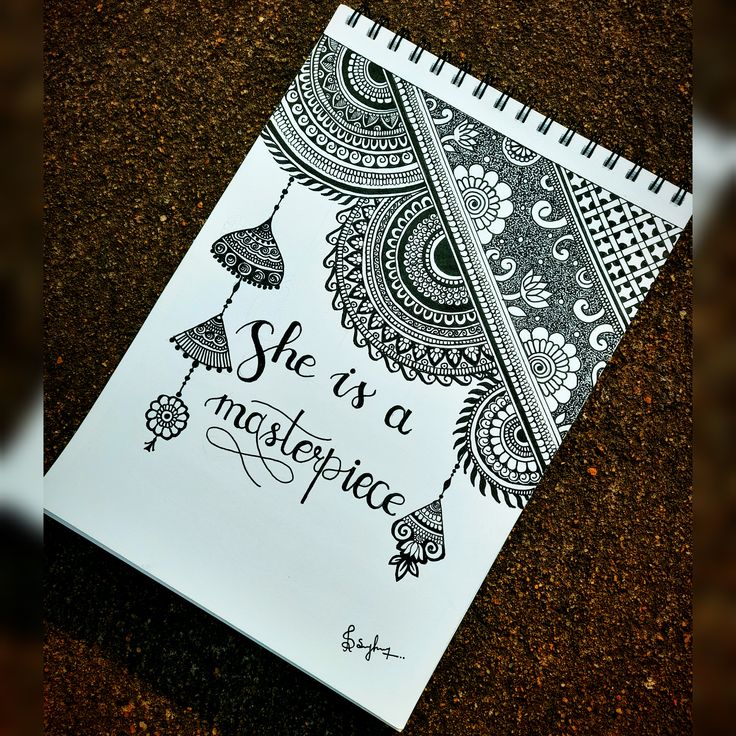 She is a
masterpiece